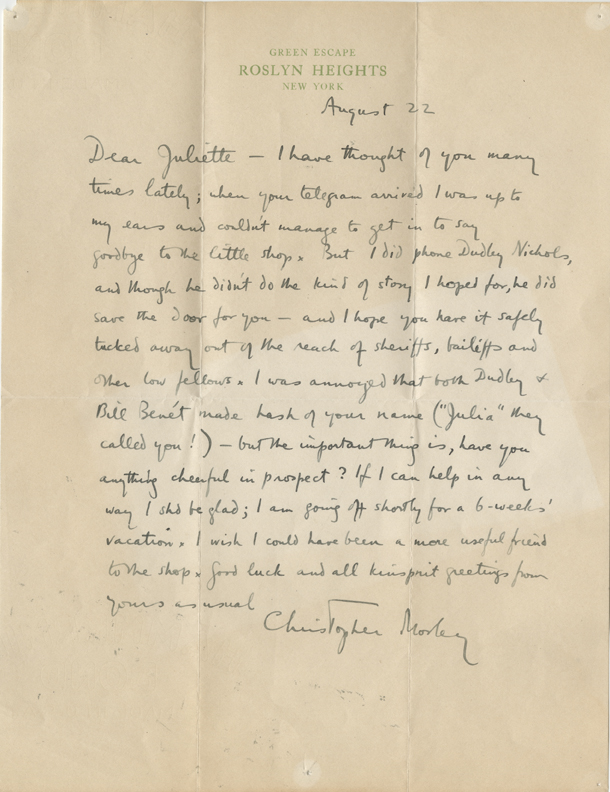 GREEN ESCAPE
ROSLYN HEIGHTS
NEW YORK
August 22
Dear Juliette — I have thought of you many
times lately; when your telegram arrived I was up to
my ears and couldn't manage to get in to say
goodbye to the little shop. But I did phone Dudley Nichols,
and though he didn't do the kind of story I hoped for, he did
save the door for you — and I hope you have it safely
tucked away out of the reach of sheriffs, bailiffs and
other low fellows. I was annoyed that both Dudley &
Bill Benét made hash of your name ("Julia" they
called you!) — but the important thing is, have you
anything cheerful in prospect? If I can help in any
way I shd be glad; I am going off shortly for a 6-weeks'
vacation. I wish I could have been a more useful friend
to the shop. Good luck and all kinsprit greetings from
yours as usual
Christopher Morley